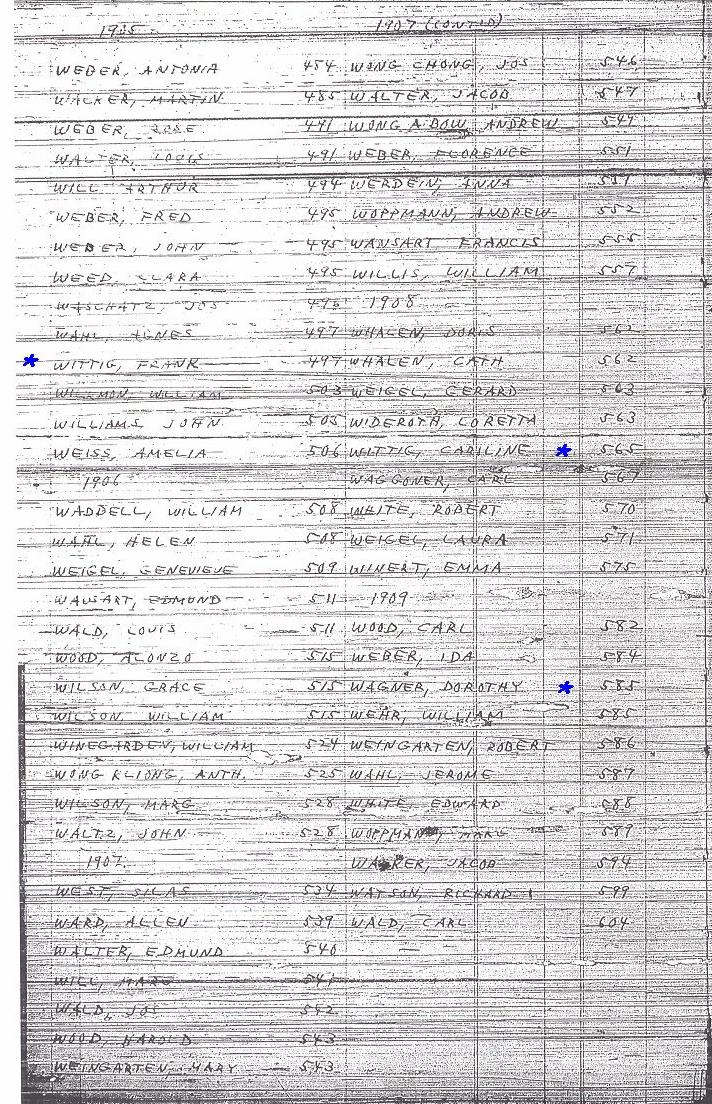 1905
WEBER, ANTONIA 454
WALKER, MARTIN 485
WEBER, ROSE 491
WALTER, LOUIS 491
WILL ARTHUR 494
WEBER, FRED 495
WEBER, JOHN 495
WEED, CLARA 495
WASCHATZ, JOS 495
WAHL, AGNES 497
* WITTIG, FRANK 497
WILLMON, WILLIAM 503
WILLIAMS JOHN 505
WEISS, AMELIA 506
1906
WADDELL, WILLIAM 508
WAHL, HELEN 508
WEIGEL, GENEVIEVE 509
WAUSART, EDMUND 511
WALD, LOUIS 511
WOOD, ALONZO 515
WILSON, GRACE 515
WILSON, WILLIAM 515
WINEGARDEN, WILLIAM 524
WONG KLIONG, ANTH. 525
WILSON, MARG 528
WALTZ, JOHN 528
1907
WEST, SILAS 534
WARD, ALLEN 539
WALTER, EDMUND 540
WILL, MARG 541
WALD, JOS 542
WOOD, HAROLD 543
WEINGARTEN, MARY 543
1907 (CONT'D)
WONG CHONG, JOS 546
WALTER, JACOB 547
WONG A BOW, ANDREW 549
WEBER, FLORENCE 551
WERDEIN, ANNA
WOPPMANN, ANDREW 552
WANSART FRANCIS 555
WILLIS, WILLIAM 557
1908
WHALEN, DORIS 562
WHALEN, CATH 562
WEIGEL, GERARD 563
WIDEROTH, LORETTA 563
WITTIG, CARILINE * 565
WAGGONER, CARL 567
WHITE, ROBERT 570
WEIGEL, LAURA 571
WINERT, EMMA 575
1909
WOOD, CARL 582
WEBER, IDA 584
WAGNER, DOROTHY * 585
WEHR, WILLIAM 585
WEINGARTEN, ROBERT 586
WAHL, JEROME 587
WHITE, EDWARD 588
WOPPMANN, MARG 589
WALKER, JACOB 594
WATSON, RICHARD 599
WALD, CARL 604